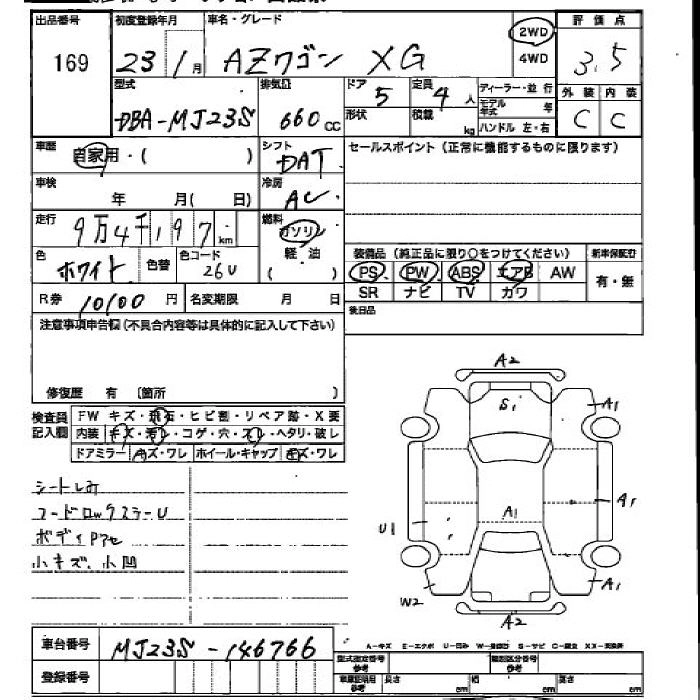 出品番号 初度登録年月 車名・グレード 2WD 評価点
169 23 / 1月 AZワゴン XG 4WD 3.5
型式 排気量 ドア 5 定員 4人 ディーラー・並行 外装 内装
DBA-MJ23S 660cc 形状 積載 kg モデル年式 年 C C
ハンドル 左・右
車歴 自家用・( ) シフト DAT セールスポイント(正常に機能するものに限ります)
車検 年 月( 日) 冷房 AC
走行 9万4千197km 燃料 ガソリン
軽油
( )
色 ホワイト 色替 色コード 26U 装備品(純正品に限り○をつけてください) 新車保証書
PS PW ABS エアB AW 有・無
SR ナビ TV カワ
R券 10100円 名変期限 月 日 後日品
注意事項申告欄(不具合内容等は具体的に記入して下さい)
修復歴 有 〔箇所 〕
検査員記入欄 FW キズ・飛石・ヒビ割・リペア跡・X要
内装 キズ・汚レ・コゲ・穴・スレ・ヘタリ・破レ
ドアミラー キズ・ワレ ホイール・キャップ キズ・ワレ
シートしみ
ボディPアセ
小キズ、小凹
A2
S1 A1
A1 A1
U1
W2 A1
A2
A-キズ E-エクボ U-凹み S-サビ
車台番号 MJ23S-146766
登録番号
型式指定番号参考 類別区分番号参考
車庫証明用参考 長さ cm 幅 cm 高さ cm